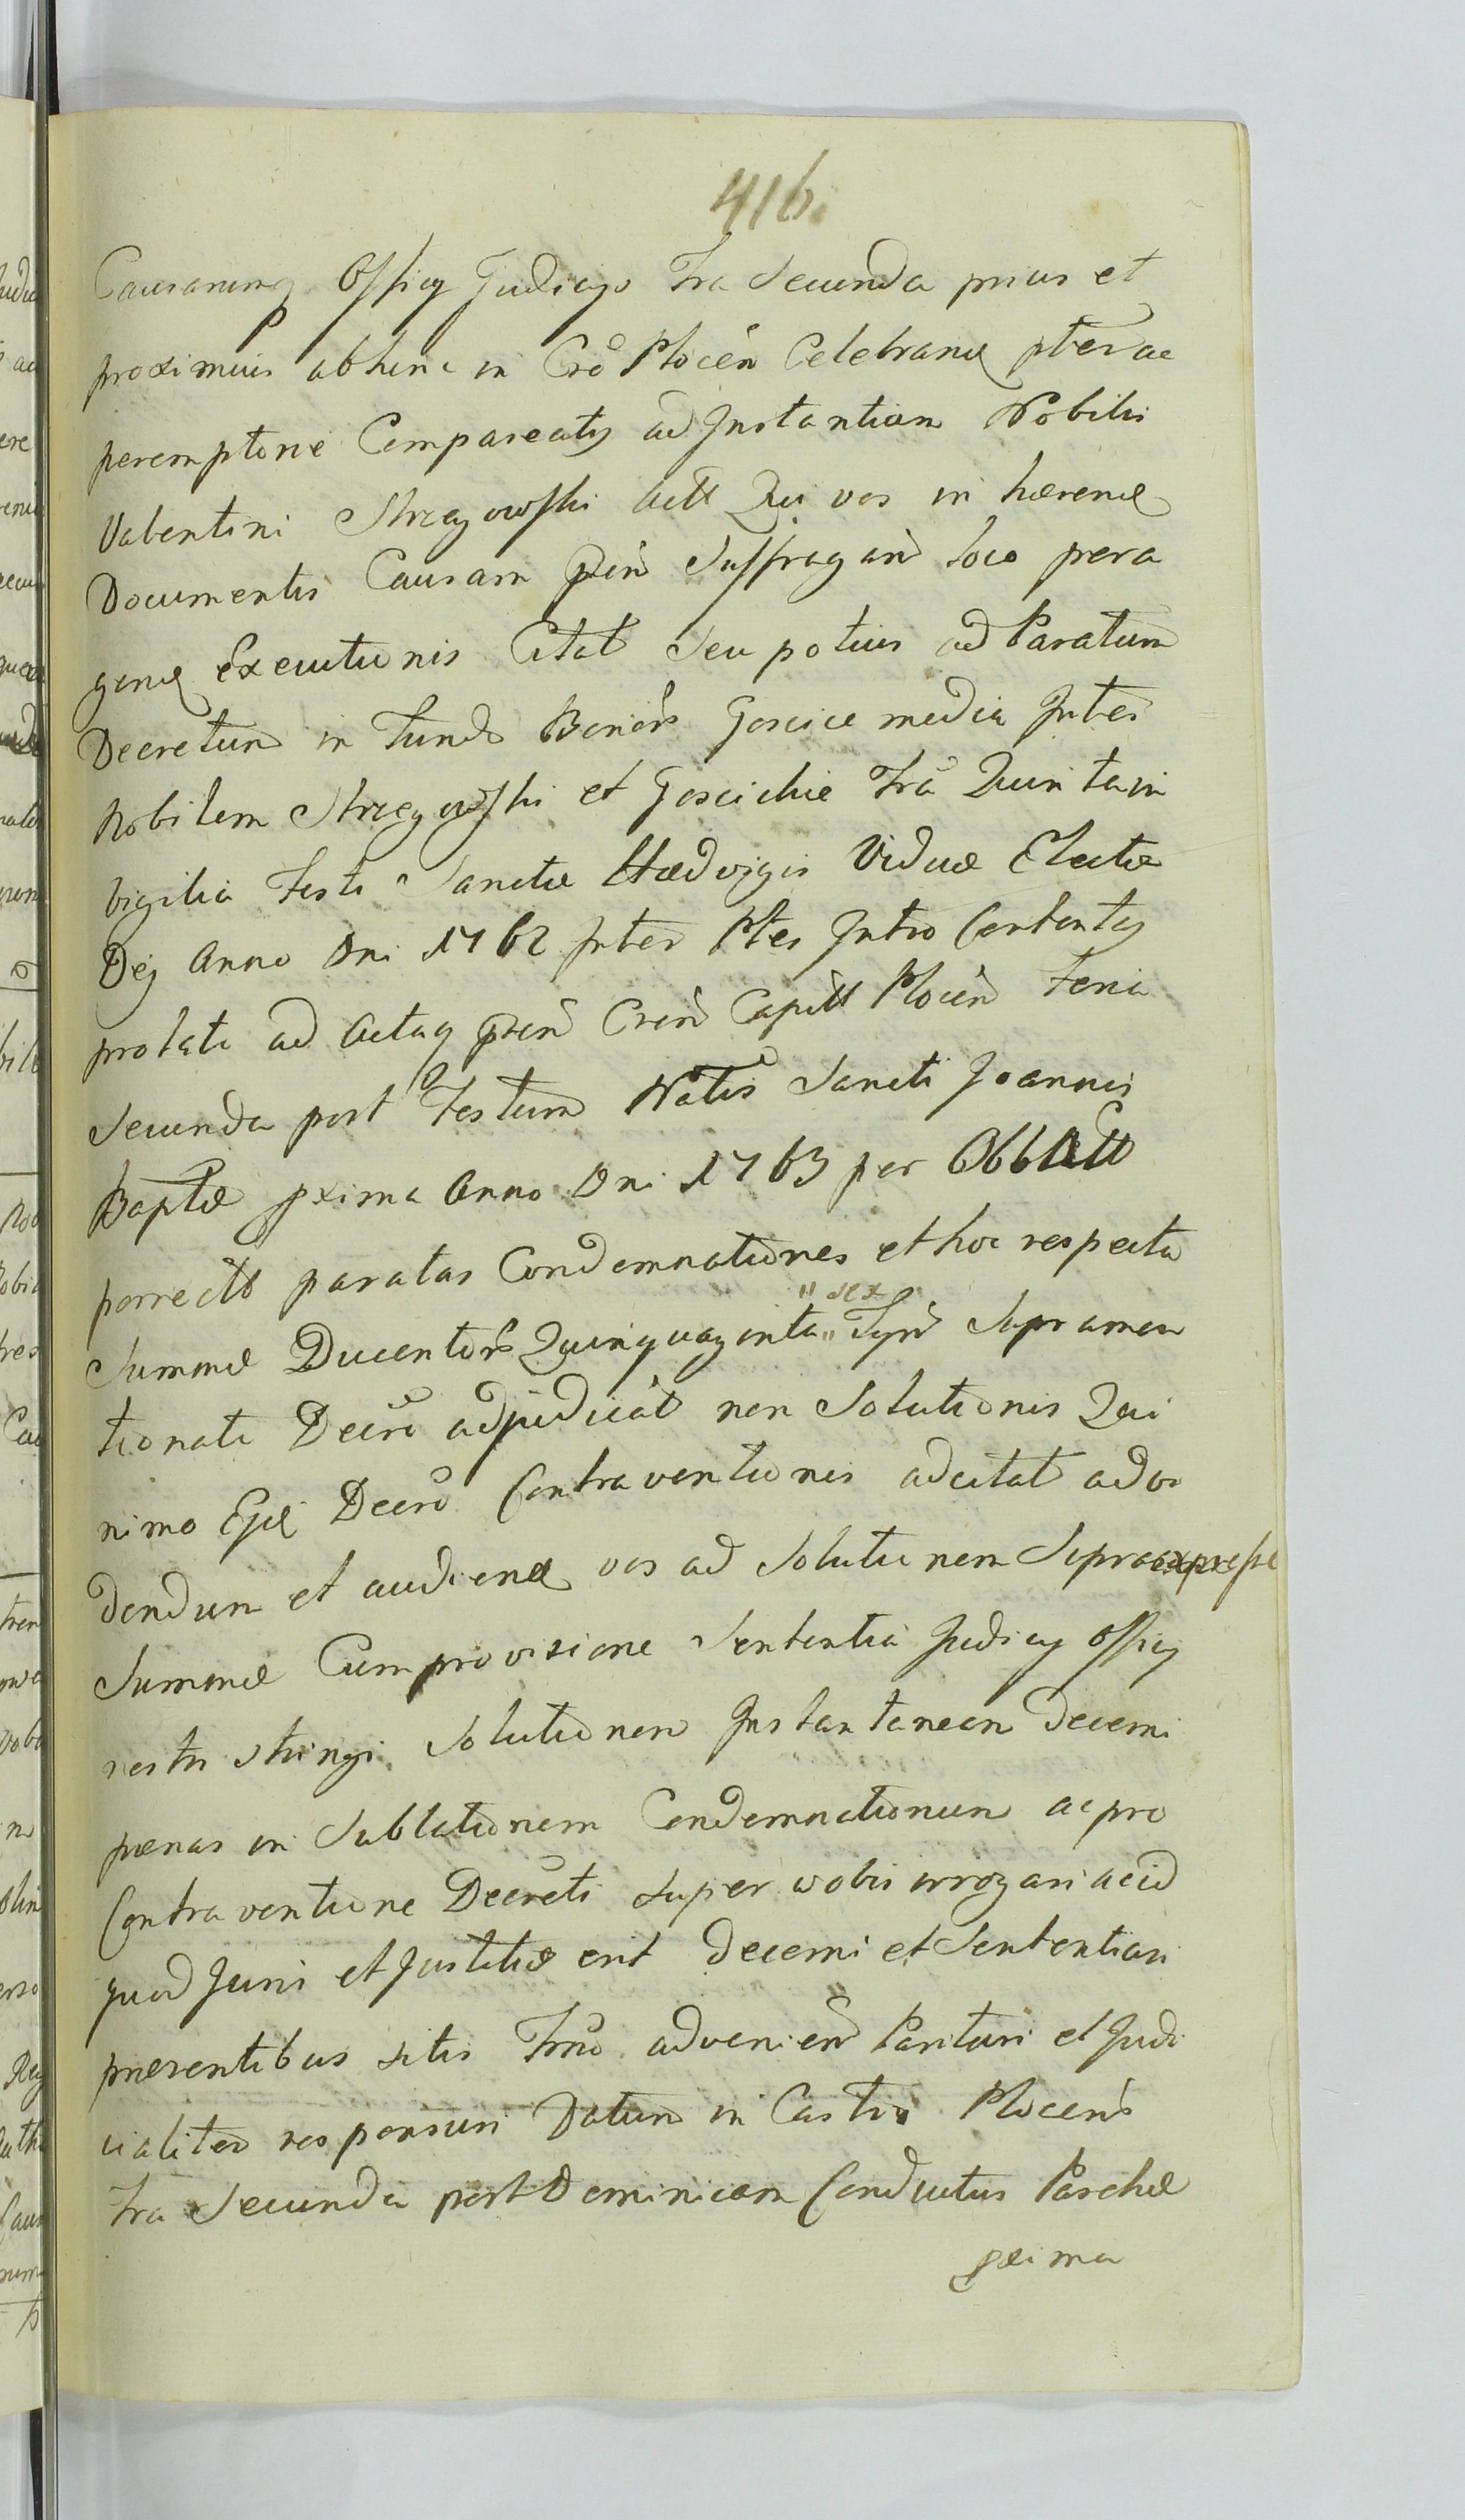 416.
Causarumq Officy Judicys Fra Secunda prius et
proximius abhinc in Crô Plocen Celebrand pter ac
peremptorie Compareatis ad Instantiam Nobilis
Valentini Strzegowski Act Qui vos in hærend
Documentis Causam pñn Suffragan loco pera
gend Executionis Citat Seu potius ad Paratum
Decretum in fundo Bonôr Goscice media Inter
Nobilem Strzegowski et Goscickie Fra Quinta in
Vigilia Festi Sanctæ Hædvigis Viduæ Electæ
Dej Anno Dni 1762 Inter Ptes Intro Contentas
prolati ad Actaq pñn Cren Capitt Plocen Feria
Secunda post Festum Natis Sancti Joannis
Baptæ pxima Anno Dni 1763 per Oblatt
porrecto paratas Condemnationes et hoc respectu
Summæ Ducentôr Quinquaginta "sex" Tyn Supramen
tionato Decro adjudicat non Solutionis Qui
nimo Ejqe Decro Contraventionis adcitat ad vi
dendum et audiend vos ad Solutionem Supraexpresse
Summæ Cum provisione Sententia Judicy Officy
nestri stringi Solutionem Instantaneam decerni
pænas in Sublationem Condemnationum ac pro
Contraventione Decreti super vobis irrogari ac id
quod Juris et Justitiæ erit decerni et Sententiari
præsentibus sitis Trno advenien Parituri et Judi
cialiter responsuri Datum in Castro Plocens
Fra Secunda post Dominicam Conductus Paschæ
pxima